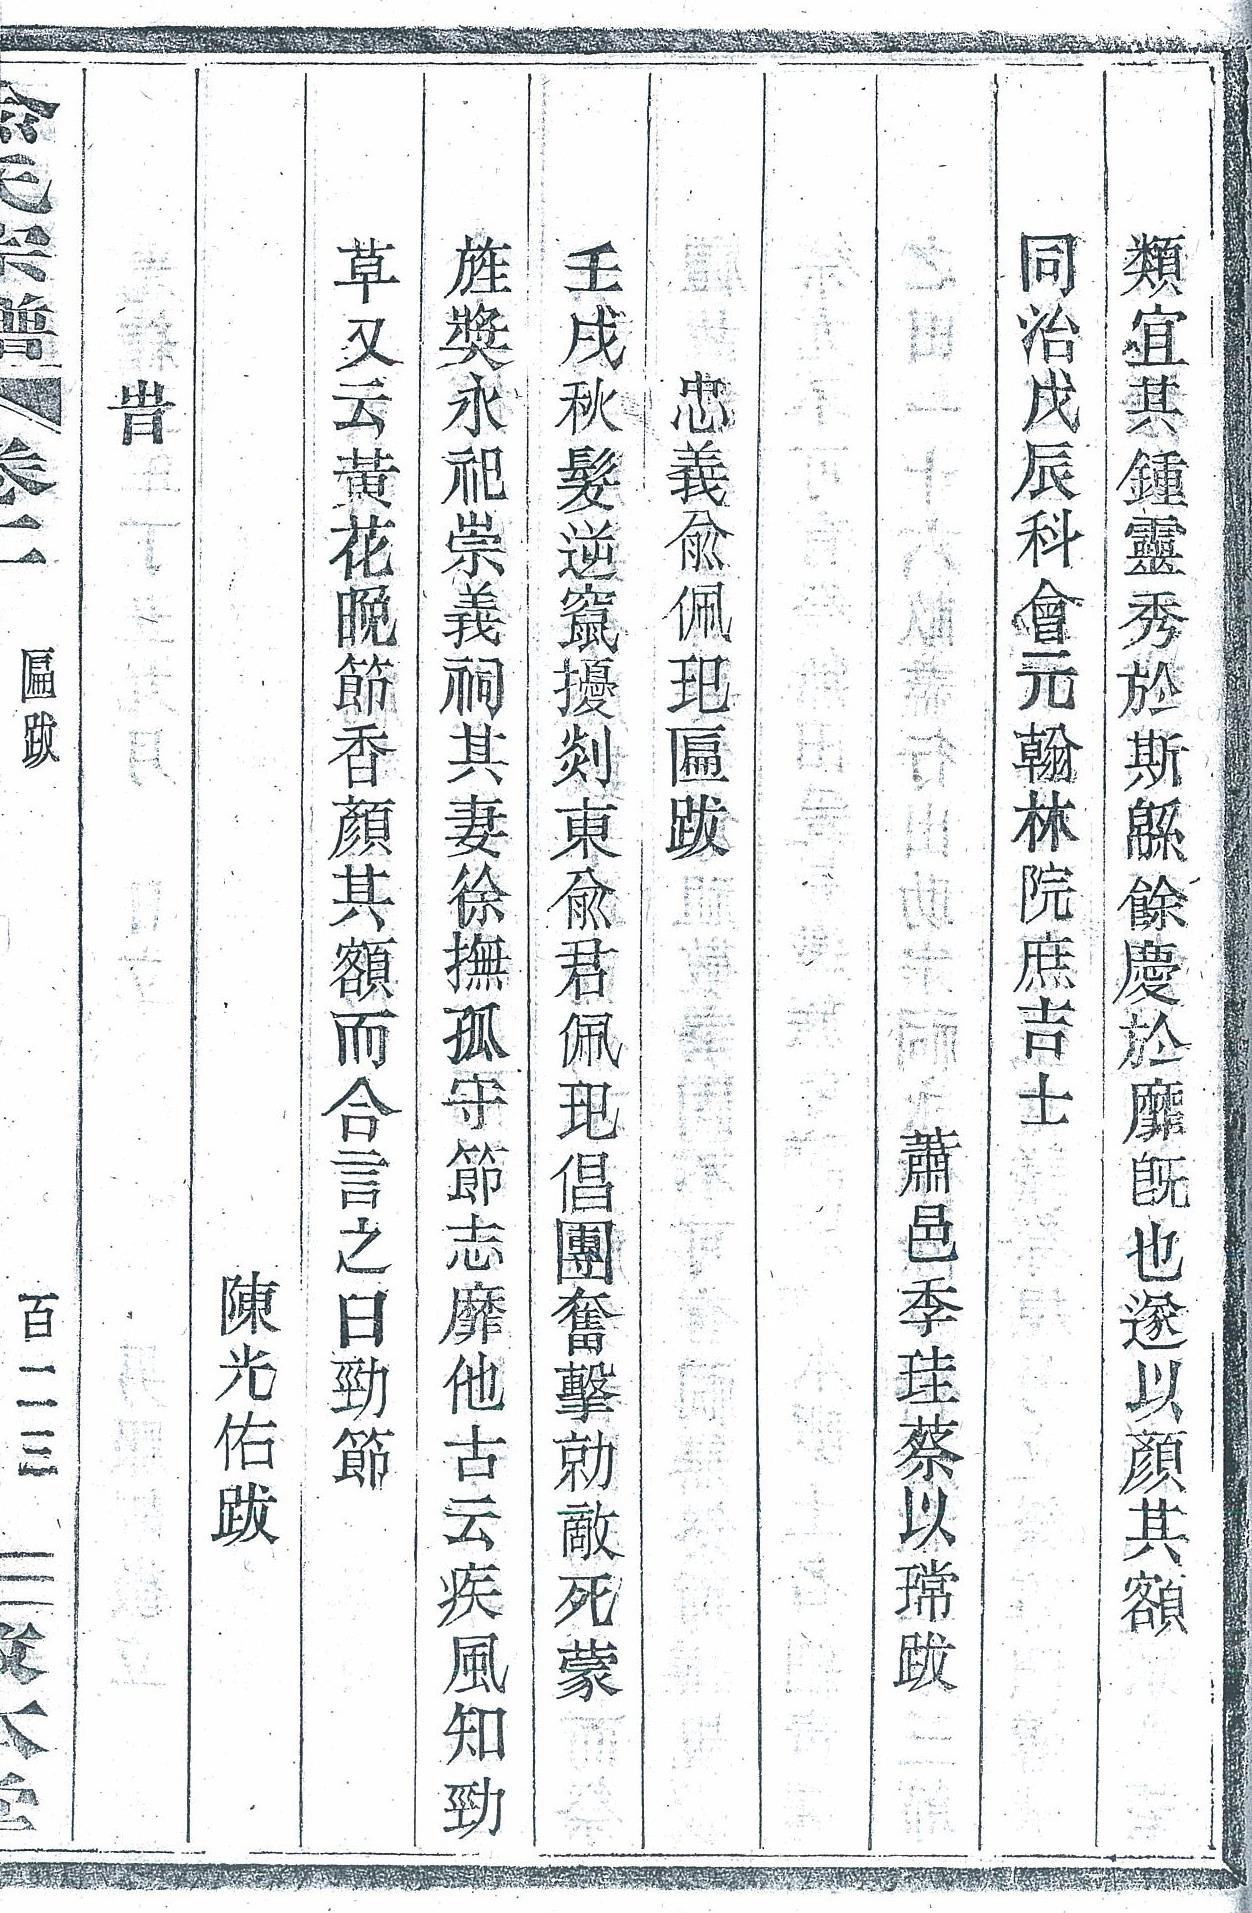 類宜其鍾靈秀於斯緜餘慶於靡旣也遂以顏其額
同治戊辰科會元翰林院庶吉士
蕭邑季珪蔡以瑺跋
忠義兪佩玘匾跋
壬戌秋髮逆竄擾剡東兪君佩玘倡團奮擊勍敵死蒙
旌奬永祀崇義祠其妻徐撫孤守節志靡他古云疾風知勁
草又云黃花晩節香顏其額而合言之曰勁節
陳光佑跋
旹
氏宗譜 卷二 匾跋 百二三